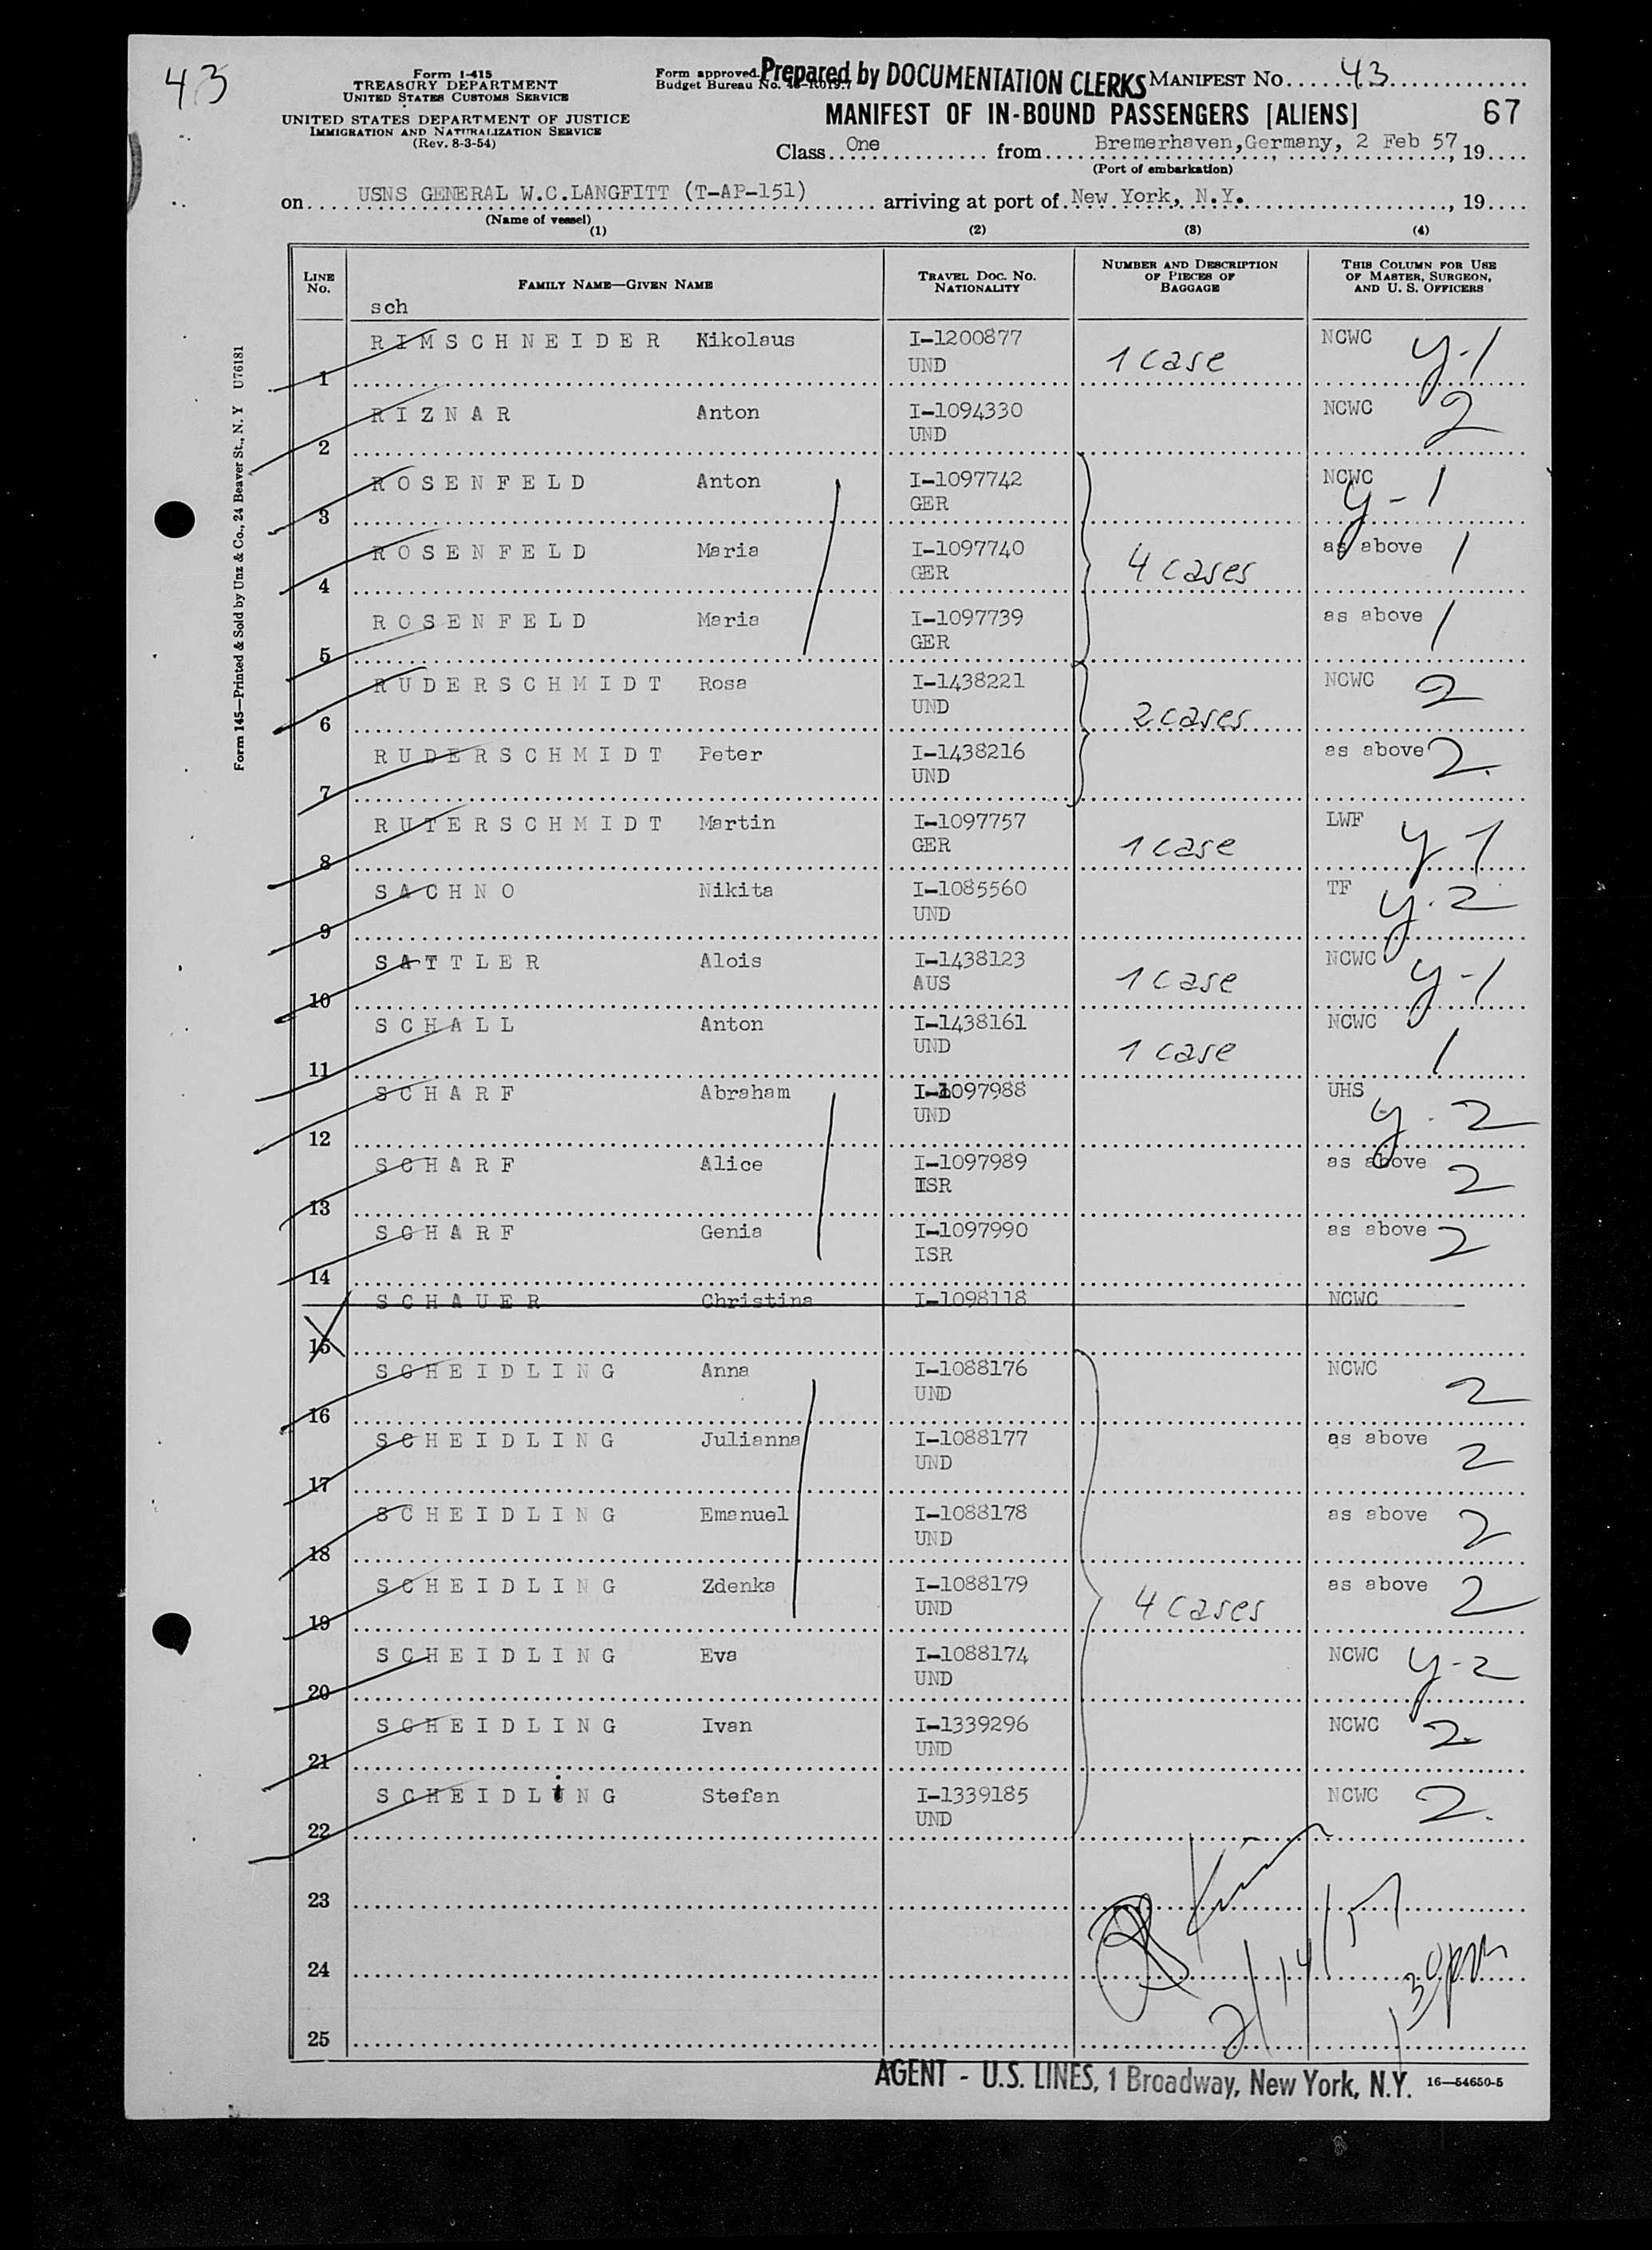 43
Form I-415
TREASURY DEPARTMENT
UNITED STATES CUSTOMS SERVICE
UNITED STATES DEPARTMENT OF JUSTICE
IMMIGRATION AND NATURALIZATION SERVICE
(Rev. 8-3-54)
Form approved.
Budget Bureau No. 43-R019.7
Prepared by DOCUMENTATION CLERKS
MANIFEST No. 43
MANIFEST OF IN-BOUND PASSENGERS [ALIENS] 67
Class One from Bremerhaven,Germany, 2 Feb 57, 19
(Port of embarkation)
on USNS GENERAL W.C.LANGFITT (T-AP-151) arriving at port of New York, N.Y., 19
(Name of vessel)
(1) (2) (3) (4)
LINE No. FAMILY NAME—GIVEN NAME TRAVEL DOC. NO. NATIONALITY NUMBER AND DESCRIPTION OF PIECES OF BAGGAGE THIS COLUMN FOR USE OF MASTER, SURGEON, AND U. S. OFFICERS
sch
1 RIMSCHNEIDER Nikolaus I-1200877 UND 1 case NCWC y-1
2 RIZNAR Anton I-1094330 UND NCWC 2
3 ROSENFELD Anton I-1097742 GER NCWC y-1
4 ROSENFELD Maria I-1097740 GER 4 cases as above 1
5 ROSENFELD Maria I-1097739 GER as above 1
6 RUDERSCHMIDT Rosa I-1438221 UND 2 cases NCWC 2
7 RUDERSCHMIDT Peter I-1438216 UND as above 2.
8 RUTERSCHMIDT Martin I-1097757 GER 1 case LWF y 1
9 SACHNO Nikita I-1085560 UND TF y.2
10 SATTLER Alois I-1438123 AUS 1 case NCWC y-1
11 SCHALL Anton I-1438161 UND 1 case NCWC 1
12 SCHARF Abraham I-1097988 UND UHS y.2
13 SCHARF Alice I-1097989 ISR as above 2
14 SCHARF Genia I-1097990 ISR as above 2
15 SCHAUER Christina I-1098118 NCWC
16 SCHEIDLING Anna I-1088176 UND NCWC 2
17 SCHEIDLING Julianna I-1088177 UND as above 2
18 SCHEIDLING Emanuel I-1088178 UND as above 2
19 SCHEIDLING Zdenka I-1088179 UND 4 cases as above 2
20 SCHEIDLING Eva I-1088174 UND NCWC y-2
21 SCHEIDLING Ivan I-1339296 UND NCWC 2
22 SCHEIDLING Stefan I-1339185 UND NCWC 2.
23
24
25
2/14/57
130pm
AGENT - U.S. LINES, 1 Broadway, New York, N.Y. 16—54650-5
Form 145—Printed & Sold by Unz & Co., 24 Beaver St., N. Y U76181